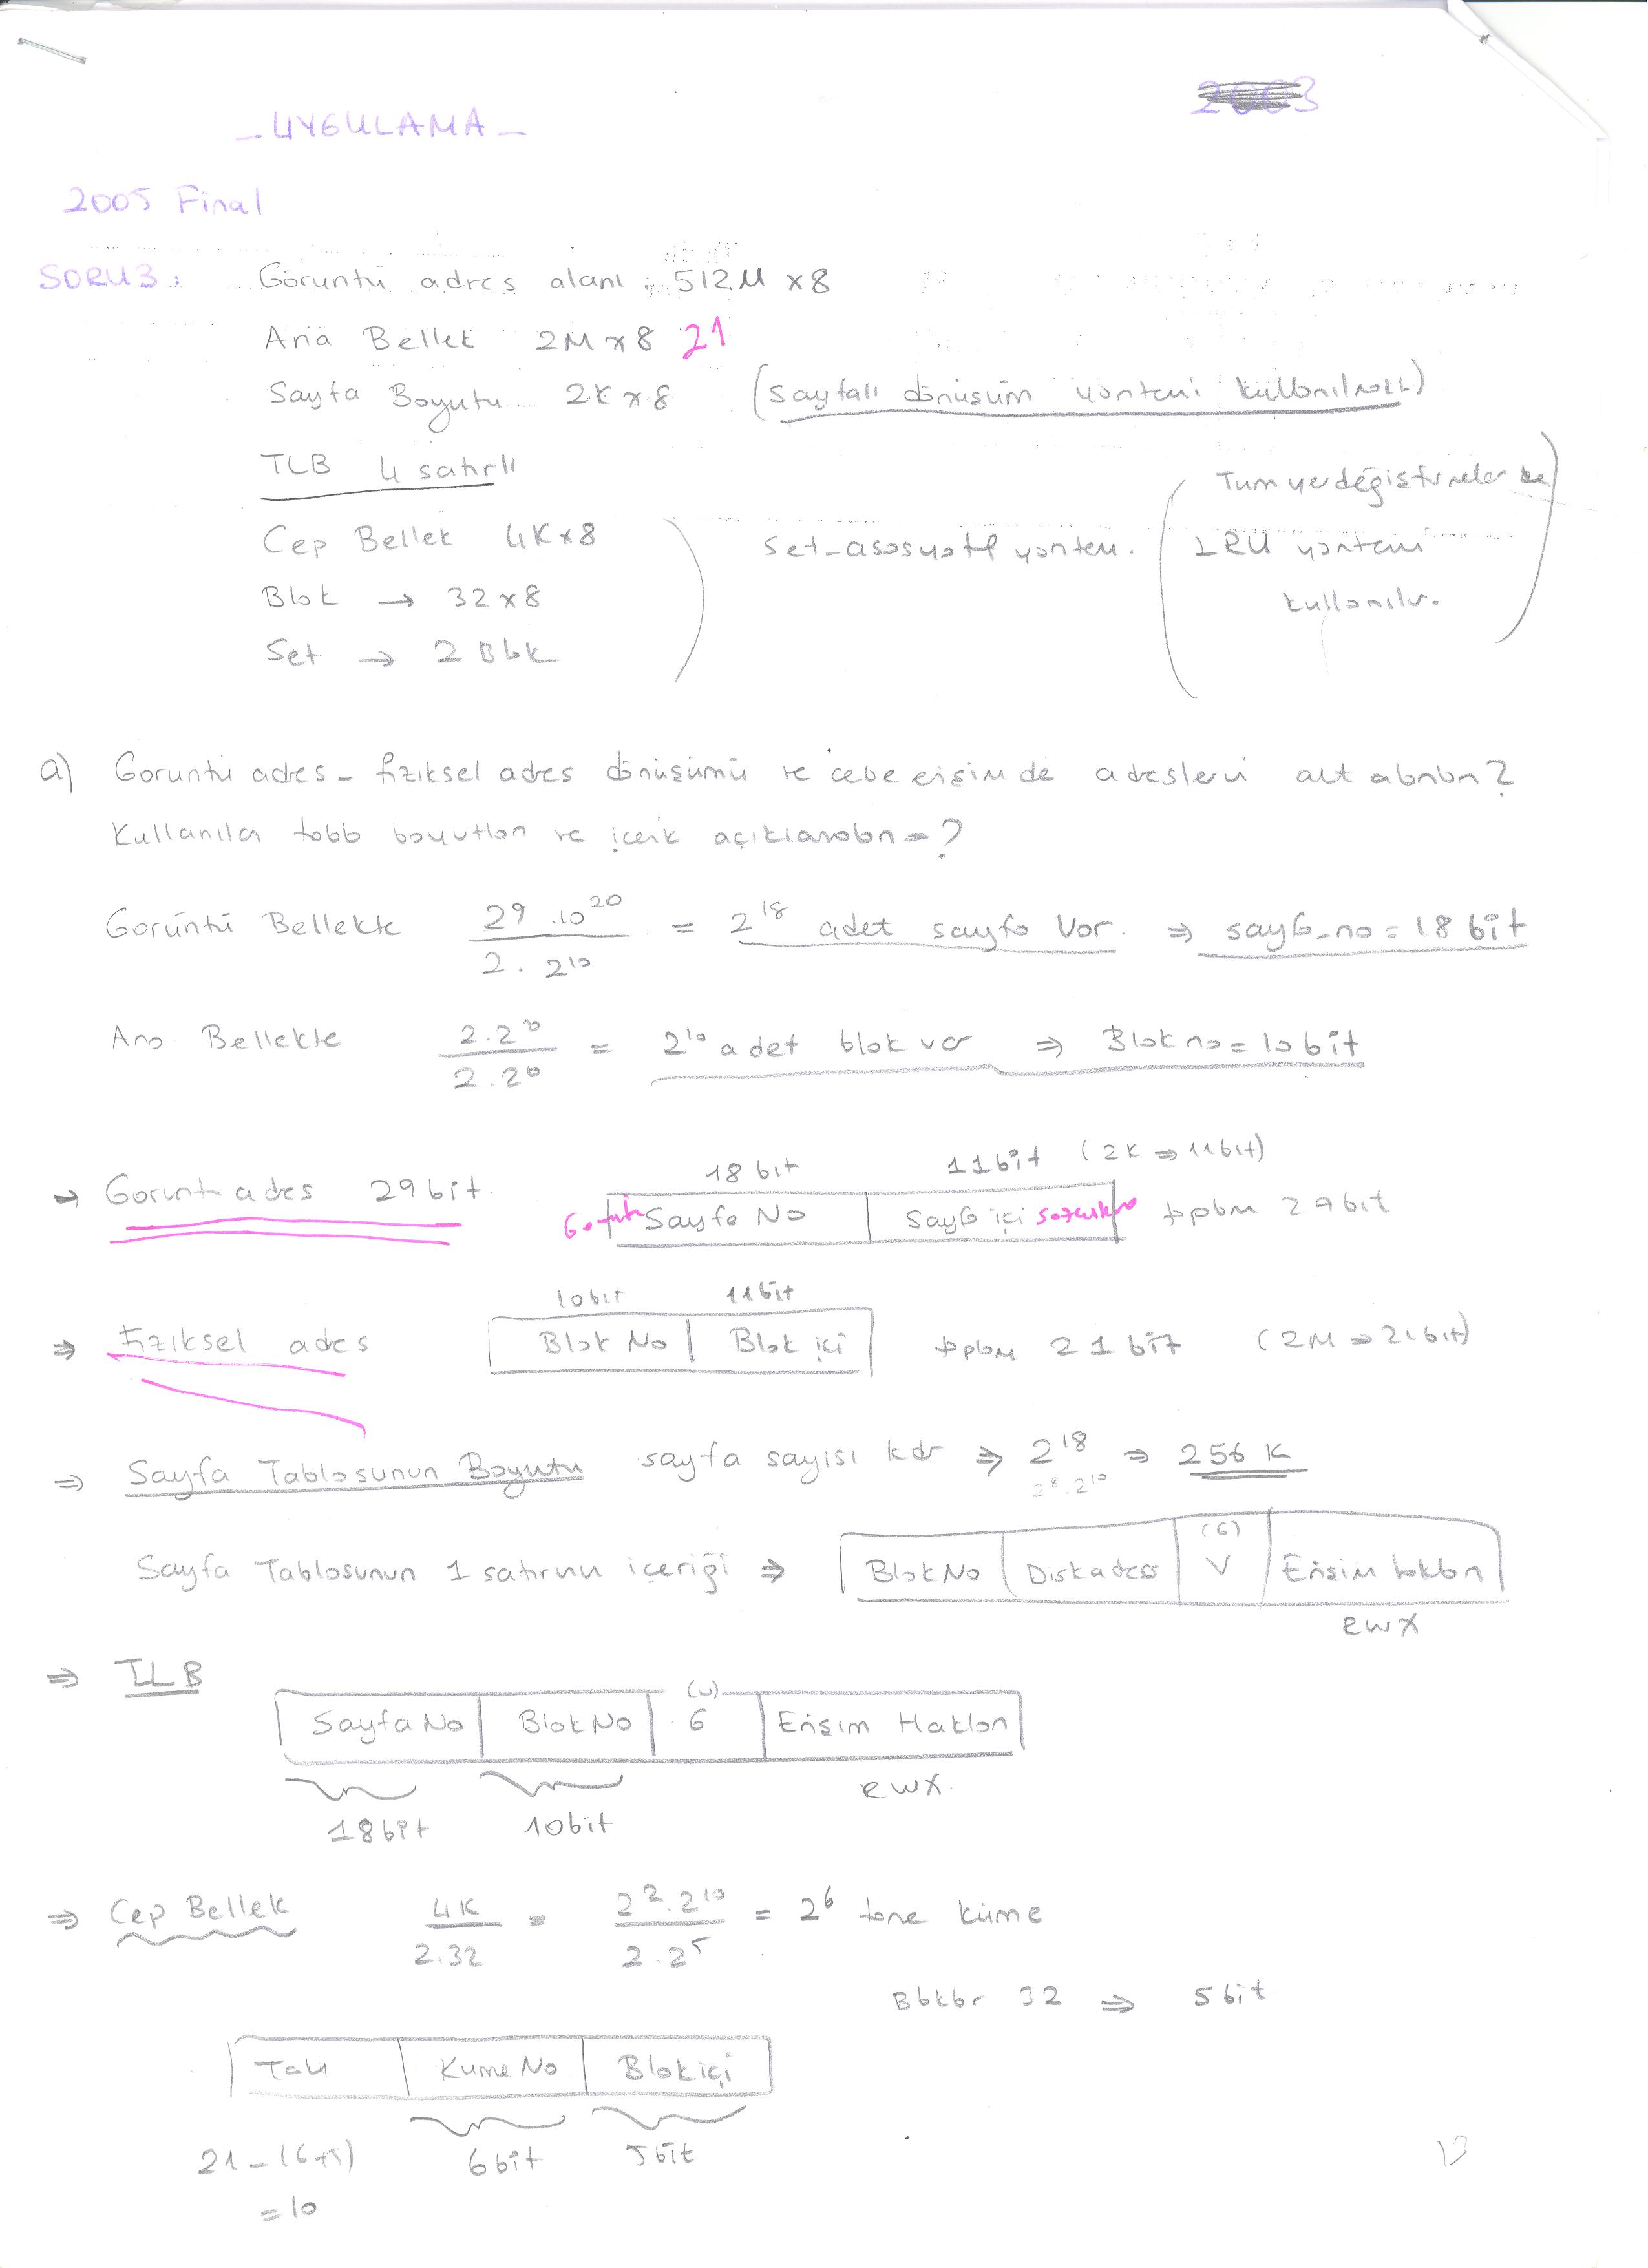 - UYGULAMA -
2005 Final
SORU 3: Görüntü adres alanı : 512M x8
Ana Bellek 2M x 8 21
Sayfa Boyutu 2K x 8 (sayfalı dönüşüm yöntemi kullanılmakt.)
TLB 4 satırlı
Cep Bellek 4K x8
Blok → 32 x8
Set → 2 Blok
Set-asosyatif yöntem.
(Tüm yerdeğiştirmelerde
LRU yöntemi
kullanılır.)
a) Görüntü adres - fiziksel adres dönüşümü ve cebe erişimde adresleri alt alanları?
Kullanılan tablo boyutları ve içerik açıklamaları = ?
Görüntü Bellekte 29.10^20 / 2.2^10 = 2^18 adet sayfa var. ⇒ sayfa-no = 18 bit
Ana Bellekte 2.2^20 / 2.2^10 = 2^10 adet blok var ⇒ Blok no = 10 bit
18 bit 11 bit (2K ⇒ 11 bit)
→ Görüntü adres 29 bit. Görüntü Sayfa No | Sayfa içi sözcük no toplam 29 bit
10 bit 11 bit
⇒ Fiziksel adres Blok No | Blok içi toplam 21 bit (2M ⇒ 21 bit)
⇒ Sayfa Tablosunun Boyutu sayfa sayısı kdr ⇒ 2^18 ⇒ 256 K
2^8.2^10
Sayfa Tablosunun 1 satırının içeriği ⇒ Blok No | Disk adresi | (G) V | Erişim hakları
RWX
⇒ TLB
Sayfa No | Blok No | (V) G | Erişim Hakları
18 bit 10 bit RWX
⇒ Cep Bellek 4K / 2.32 = 2^2.2^10 / 2.2^5 = 2^6 tane küme
Bloklar 32 ⇒ 5 bit
Takı | Kume No | Blok içi
21 - (6+5) 6 bit 5 bit
= 10
13